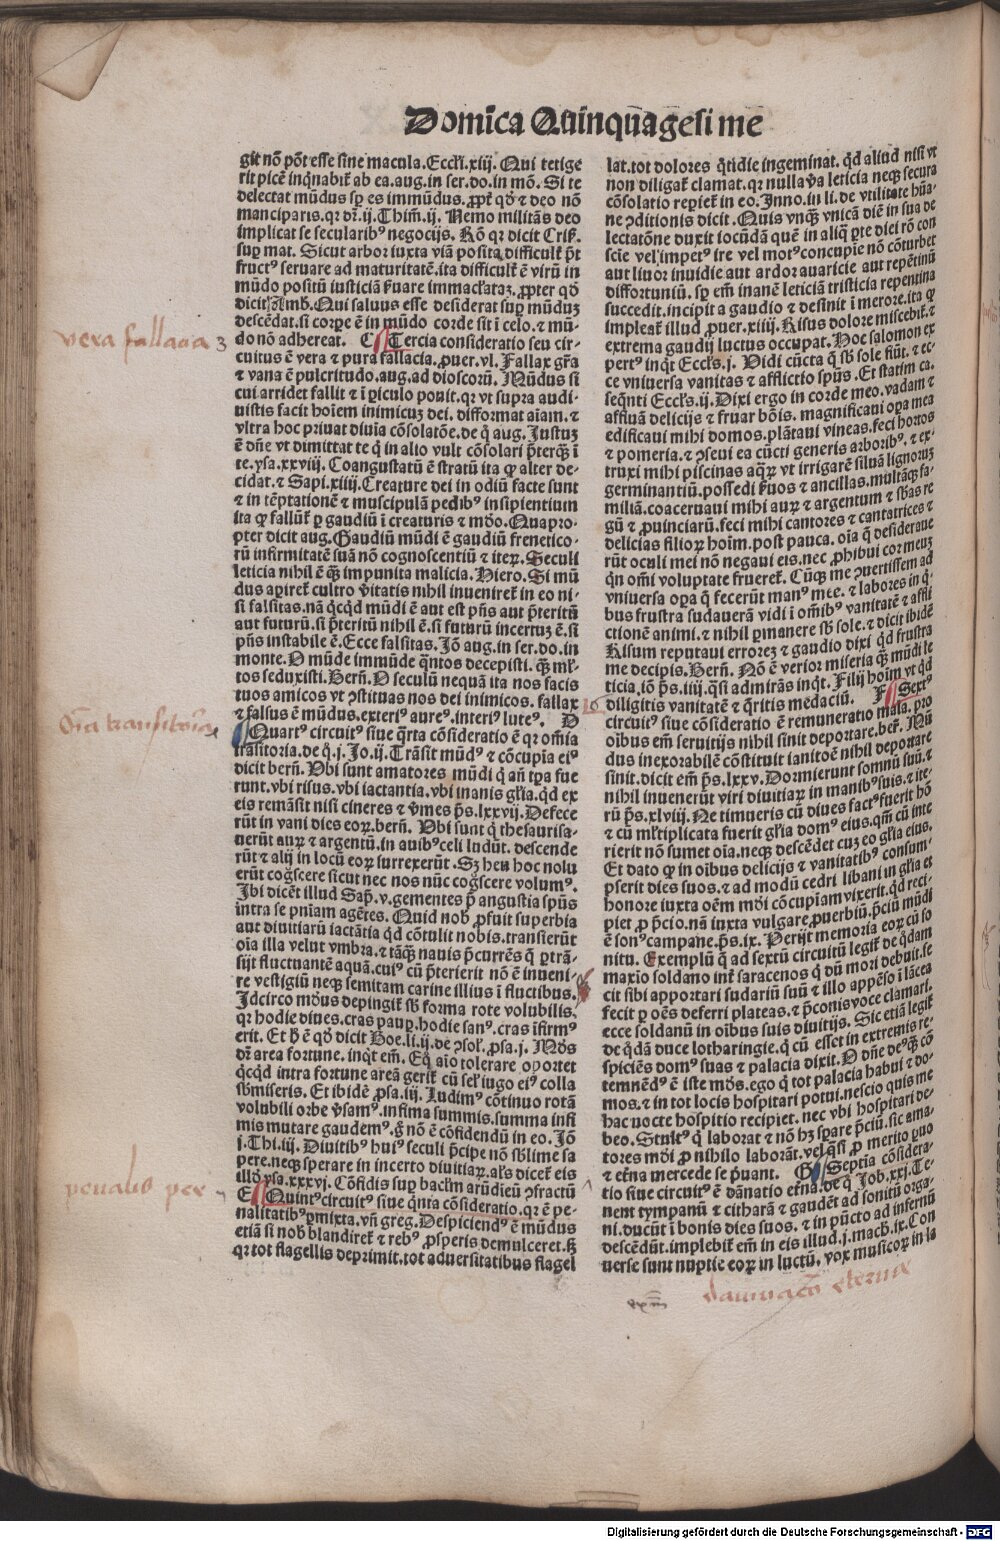 Domīca Quinquāgesime
git nō pōt esse sine macula. Eccłi. xiij. Qui tetige
rit picē inqͥnabiť ab ea. aug. in ser. do. in mō. Si te
delectat mūdus sp es immūdus. ꝓpť qd̄ ⁊ deo nō
manciparis. qꝛ dꝛ. ij. Thim̄. ij. Nemo militās deo
implicat se secularibꝰ negocijs. Rō qꝛ dicit Criſ.
suꝑ mat. Sicut arbor iuxta viā posita difficulť p̄t
fructꝰ seruare ad maturitatē. ita difficulť ē virū in
mūdo positū iusticiā ẜuare immaclataꝫ. ꝓpter qd̄
dicit Amb. Qui saluus esse desiderat suꝑ mūduꝫ
descēdat. si corpe ē in mūdo corde sit ī celo. ⁊ mū-
do nō adhereat. C Tercia consideratio seu cir-
cuitus ē vera ⁊ pura fallacia. ꝓuer. vl. Fallax gr̄a
⁊ vana ē pulcritudo. aug. ad dioscorū. Mūdus si
cui arridet fallit ⁊ ī ꝑiculo ponit. qꝛ vt supra audi-
uistis facit hoīem inimicuꝫ dei. difformat aīam. ⁊
vltra hoc priuat diuīa cōsolatōe. de q̄ aug. Justuꝫ
ē dn̄e vt dimittat te qͥ in alio vult cōsolari p̄terqͣꝫ ī
te. ysa. xxviij. Coangustatū ē stratū ita ꝙ alter de-
cidat. ⁊ Sapi. xiiij. Creature dei in odiū facte sunt
⁊ in tēptationē ⁊ muscipulā pedibꝰ insipientium
ita ꝙ fallūť ꝑ gaudiū ī creaturis ⁊ mōdo. Quapro-
pter dicit aug. Gaudiū mūdi ē gaudiū frenetico-
rū infirmitatē suā nō cognoscentiū ⁊ iteꝝ. Seculi
leticia nihil ē qͣꝫ impunita malicia. Hiero. Si mū
dus aꝑireť cultro v̓itatis nihil inuenireť in eo ni-
si falsitas. nā qͥcqͥd mūdi ē aut est pn̄s aut p̄teritū
aut futurū. si p̄teritū nihil ē. si futurū incertuꝫ ē. si
pn̄s instabile ē. Ecce falsitas. Jō aug. in ser. do. in
monte. O mūde immūde qͣntos decepisti. qͣꝫ mł-
tos seduxisti. Bern̄. O seculū nequā ita nos facis
tuos amicos vt ꝯstituas nos dei inimicos. fallax
⁊ falsus ē mūdus. exteriꝰ aureꝰ. interiꝰ luteꝰ. D
Quartꝰ circuitꝰ siue qͣrta cōsideratio ē qꝛ om̄ia
trāsitoria. de q̄. j. Jo. ij. Trāsit mūdꝰ ⁊ cōcupīa eiꝰ
dicit bern̄. Vbi sunt amatores mūdi qͥ an̄ tp̄a fue
runt. vbi risus. vbi iactantia. vbi inanis głia. qͥd ex
eis remāsit nisi cineres ⁊ v̓mes p̄s. lxxvij. Defece
rūt in vani dies eoꝝ. bern̄. Vbi sunt qͥ thesaurisa-
uerūt auꝝ ⁊ argentū. in auibꝰ celi ludūt. descende
rūt ⁊ alij in locū eoꝝ surrexerūt. Sꝫ heu hoc nolu
erūt cog̃scere sicut nec nos nūc cog̃scere volumꝰ.
Jbi dicēt illud Sap̄. v. gementes p̄ angustia sp̄us
intra se pn̄iam agētes. Quid nob̄ ꝓfuit superbia
aut diuitiarū iactātia qͥd cōtulit nobis. transierūt
oīa illa velut vmbra. ⁊ tāqͣꝫ nauis p̄currēs qͥ ꝑtrā-
sijt fluctuantē aquā. cuiꝰ cū p̄terierit nō ē inueni-
re vestigiū neqꝫ semitam carine illius ī fluctibus.
Jdcirco mōdus depingiť sb̄ forma rote volubilis.
qꝛ hodie diues. cras pauꝑ. hodie sanꝰ. cras īfirmꝰ
erit. Et h̄ ē qd̄ dicit Boe. li. ij. de ꝯsoł. ꝓsa. j. Mōdꝰ
dꝛ area fortune. inqͥt em̄. Eqͦ aīo tolerare oportet
qͥcqͥd intra fortune areā geriť cū seł iugo eiꝰ colla
sb̄miseris. Et ibidē ꝓsa. iij. Ludimꝰ cōtinuo rotā
volubili orbe v̓samꝰ. infima summis. summa infi
mis mutare gaudemꝰ. gͦ nō ē cōfidendū in eo. Jō
j. Thi. iij. Diuitibꝰ huiꝰ seculi p̄cipe nō sb̄lime sa
pere. neqꝫ sperare in incerto diuitiaꝝ. als diceť eis
illd̓ ysa. xxxvj. Cōfidis suꝑ baclm̄ arūdieū ꝯfractū
E Quintꝰ circuitꝰ siue qͥnta cōsideratio. qꝛ ē pe-
nalitatibꝰ ꝑmixta. vn̄ greg. Despiciendꝰ ē mūdus
etiā si nob̄ blandireť ⁊ rebꝰ ꝓsperis demulceret. sꝫ
qꝛ tot flagellis deprimit. tot aduersitatibus flagel
lat. tot dolores qͦtidie ingeminat. qͥd aliud nisi vt
non diligaꝛ clamat. qꝛ nulla v̓a leticia neqꝫ secura
cōsolatio repiet̄ in eo. Inno. in li. de vtilitate hūa-
ne ꝯditionis dicit. Quis vnqͣꝫ vnicā diē in sua de
lectatōne duxit iocūdā quē in aliqͣ ꝑte diei rō con
scīe vel impetꝰ ire vel motꝰ concupīe nō cōturbet
aut liuor inuidie aut ardor auaricie aut repētinū
diffortuniū. sp em̄ inanē leticiā tristicia repentina
succedit. incipit a gaudio ⁊ desinit ī merore. ita ꝙ
impleaꝛ illud ꝓuer. xiiij. Risus dolore miscebit. ⁊
extrema gaudij luctus occupat. Hoc salomon ex
pertꝰ inqͥt Eccłs. j. Vidi cūcta qͥ sb̄ sole fiūt. ⁊ ec-
ce vniuersa vanitas ⁊ afflictio sp̄us. Et statim ca.
seqn̄ti Eccłs. ij. Dixi ergo in corde meo. vadam ⁊
affluā delicijs ⁊ fruar bōis. magnificaui oꝑa mea
edificaui mihi domos. plātaui vineas. feci hortos
⁊ pomeria. ⁊ ꝯseui ea cūcti generis arboribꝰ. ⁊ ex-
truxi mihi piscinas aqͣꝝ vt irrigarē siluā lignoruꝫ
germinantiū. possedi ẜuos ⁊ ancillas. multāqꝫ fa-
miliā. coaceruaui mihi auꝝ ⁊ argentum ⁊ sb̄as re
gū ⁊ ꝓuinciarū. feci mihi cantores ⁊ cantatrices ⁊
delicias filioꝝ hoīm. post pauca. oīa q̄ desideraue
rūt oculi mei nō negaui eis. nec ꝓhibui cor meuꝫ
qͥn omī voluptate fruereť. Cūqꝫ me ꝯuertissem ad
vniuersa oꝑa q̄ fecerūt manꝰ mee. ⁊ labores in qͥ-
bus frustra sudauerā vidi ī om̄ibꝰ vanitatē ⁊ affli
ctionē animi. ⁊ nihil ꝑmanere sb̄ sole. ⁊ dicit ibidē
Risum reputaui errorez ⁊ gaudio dixi qͥd frustra
me decipis. Bern̄. Nō ē verior miseria qͣꝫ mūdi le
ticia. iō p̄s. iiij. qͣsi admirās inqͥt. Filij hoīm vt qͥd
diligitis vanitatē ⁊ qͥritis mēdaciū. F Sextꝰ
circuitꝰ siue cōsideratio ē remuneratio mala. pro
oībus em̄ seruitijs nihil sinit deportare. ber̄. Mū
dus inexorabilē cōstituit ianitoē nihil deportare
sinit. dicit em̄ p̄s. lxxv. Dormierunt somnū suū. ⁊
nihil inuenerūt viri diuitiaꝝ in manibꝰ suis. ⁊ ite-
rū p̄s. xlviij. Ne timueris cū diues factꝰ fuerit hō
⁊ cū młtiplicata fuerit głia domꝰ eius. qm̄ cū inte
rierit nō sumet oīa. neqꝫ descēdet cuꝫ eo głia eius.
Et dato ꝙ in oībus delicijs ⁊ vanitatibꝰ consum-
pserit dies suos. ⁊ ad modū cedri libani in głia et
honore iuxta oēm mōi cōcupīam vixerit. qͥd reci-
piet ꝓ p̄cio. nā iuxta vulgare ꝓuerbiū. p̄ciū mūdi
ē sonꝰ campane. p̄s. ix. Perijt memoria eoꝝ cū so
nitu. Exemplū qͥ ad sextū circuitū legiť de qͦdam
maxio soldano int̄ saracenos qͥ dū mori debuit. fe
cit sibi apportari sudariū suū ⁊ illo appēso ī lācea
fecit ꝑ oēs deferri plateas. ⁊ p̄conis voce clamari.
ecce soldanū in oībus suis diuitijs. Sic etiā legiť
de qͦdā duce lotharingie. qͥ cū esset in extremis re-
spiciēs domꝰ suas ⁊ palacia dixit. O dn̄e deꝰ qͣꝫ cō
temnēdꝰ ē iste mōs. ego qͥ tot palacia habui ⁊ do-
mos. ⁊ in tot locis hospitari potui. nescio quis me
hac nocte hospitio recipiet. nec vbi hospitari de-
beo. Stultꝰ qͥ laborat ⁊ nō hꝫ sꝑare p̄ciū. sic ama-
tores mōi ꝓ nihilo laborāt. vel qͣsi ꝓ merito ꝑuo
⁊ et̓na mercede se p̓uant. G Septīa cōsidera-
tio siue circuitꝰ ē dānatio et̓na. de q̄ Job. xxj. Te-
nent tympanū ⁊ citharā ⁊ gaudēt ad sonitū orga-
ni. ducūt ī bonis dies suos. ⁊ in pūcto ad infernū
descēdūt. implebiť em̄ in eis illud. j. macħ. ix. Con
uerse sunt nuptie eoꝝ in luctū. vox musicoꝝ in la
vera fallacia 3
Oīa transitoria
penalis per
dampnacō eterna